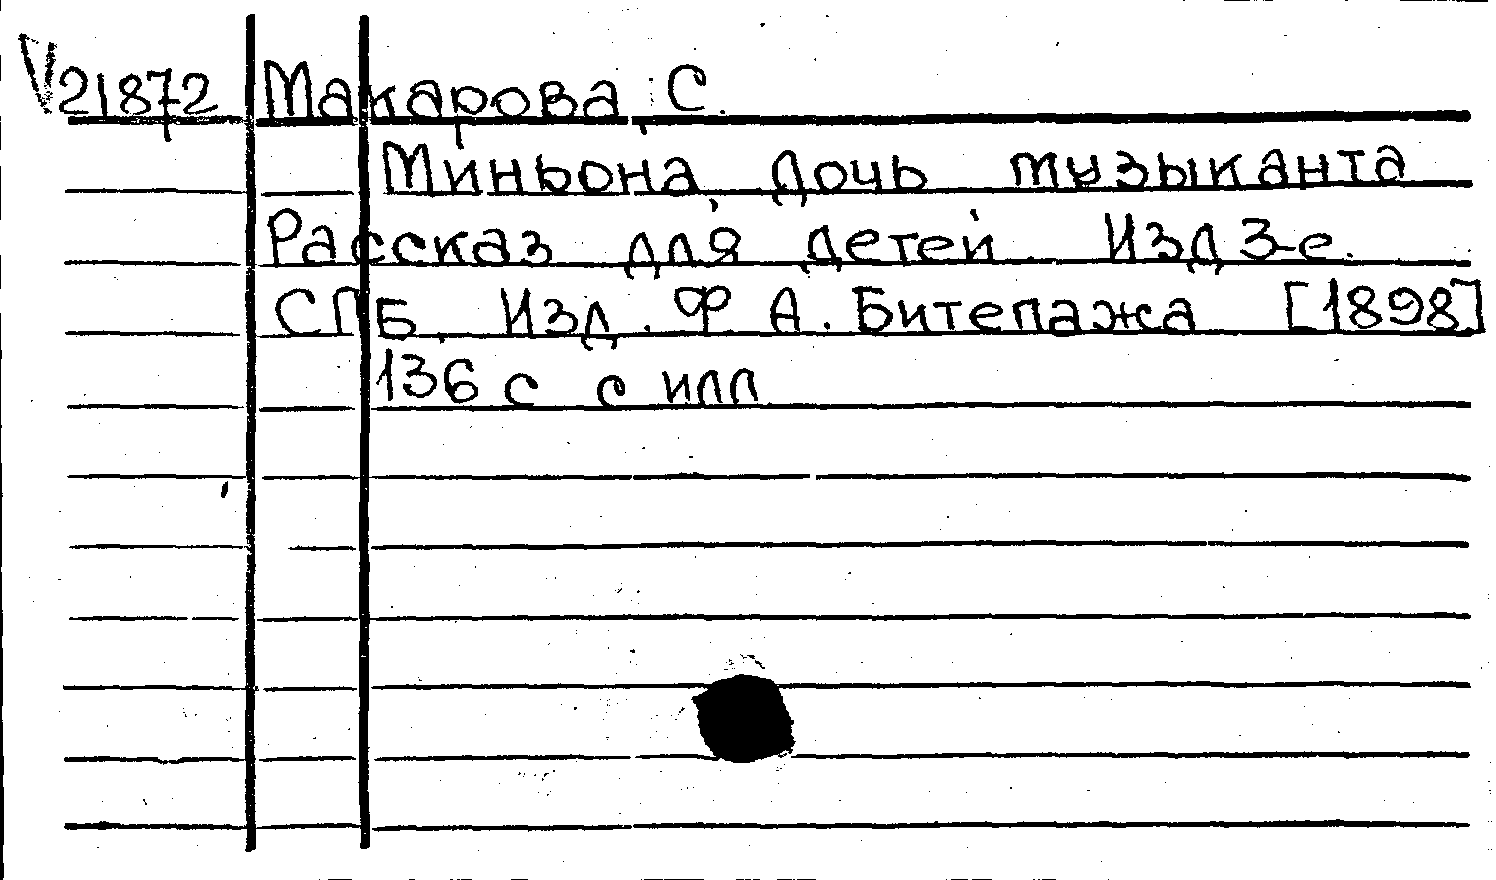 V21872 Макарова, С.
Миньона, дочь музыканта
Рассказ для детей. Изд 3-е.
СПБ, Изд. Ф А. Битепажа [1898]
136 с с илл